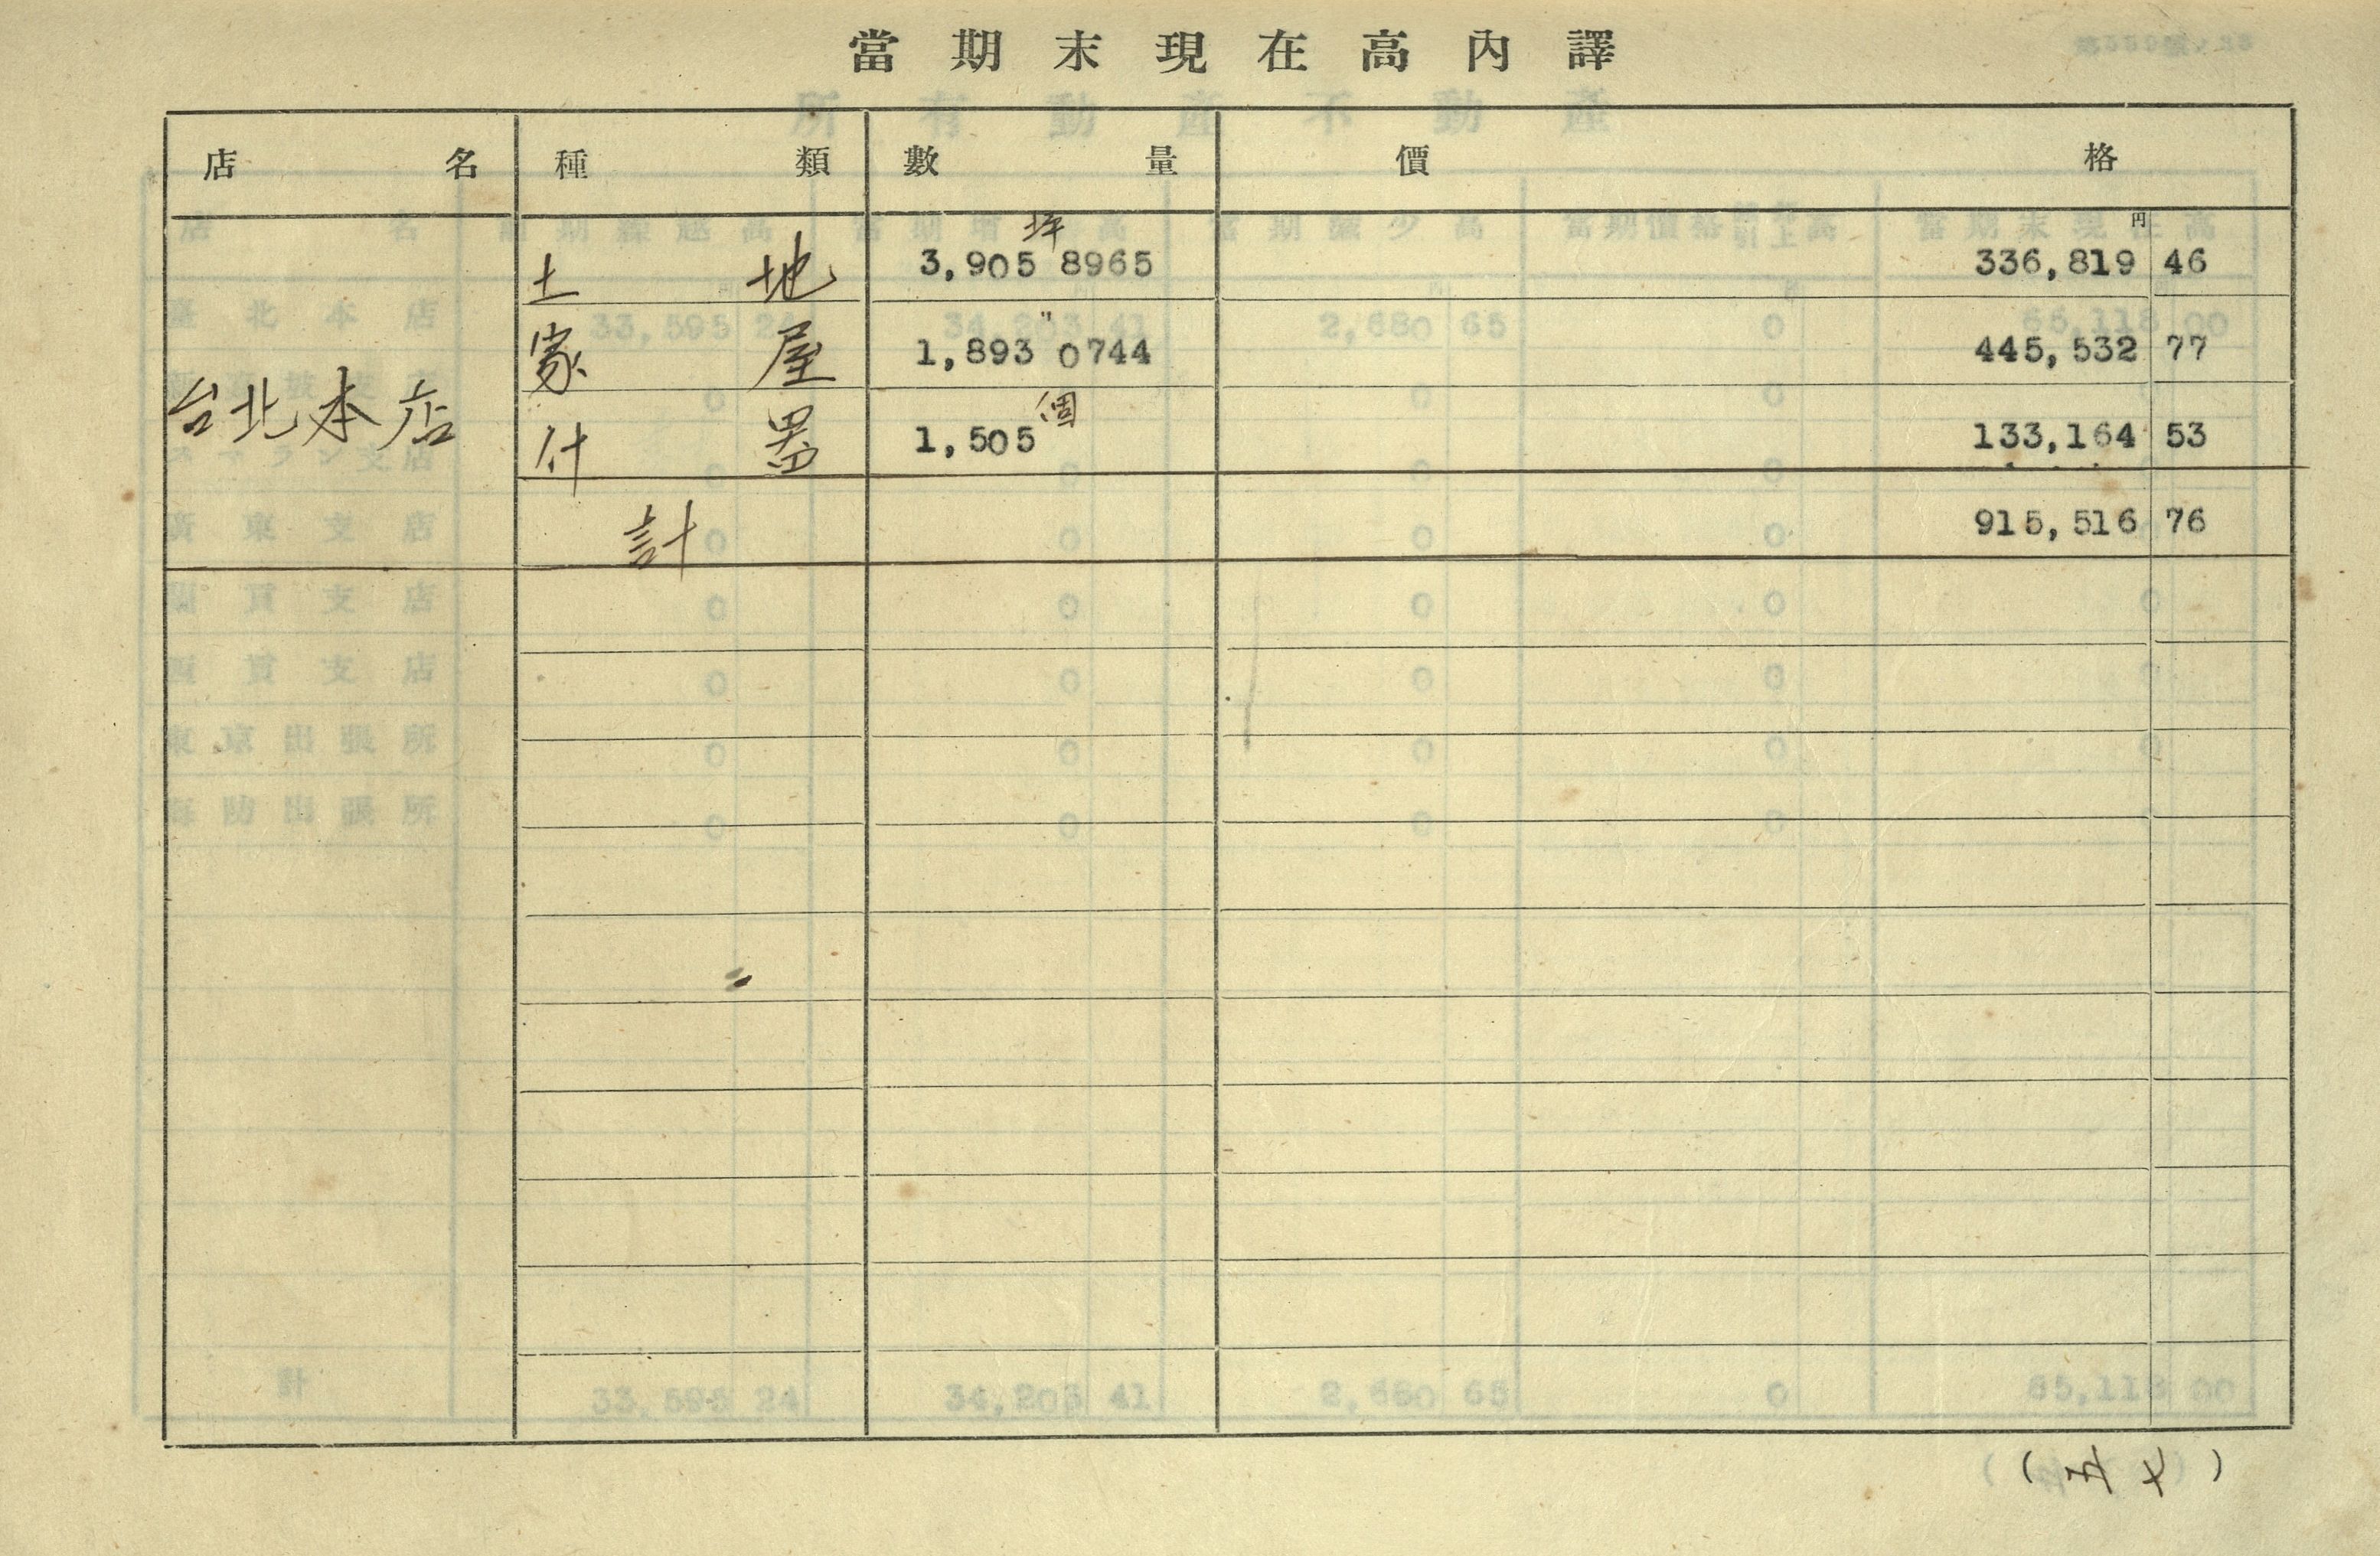 當期末現在高內譯
店名 種類 數量 價格
坪 円
土地 3,905 8965 336,819 46
〃
家屋 1,893 0744 445,532 77
台北本店
個
什器 1,505 133,164 53
計 915,516 76
(五七)